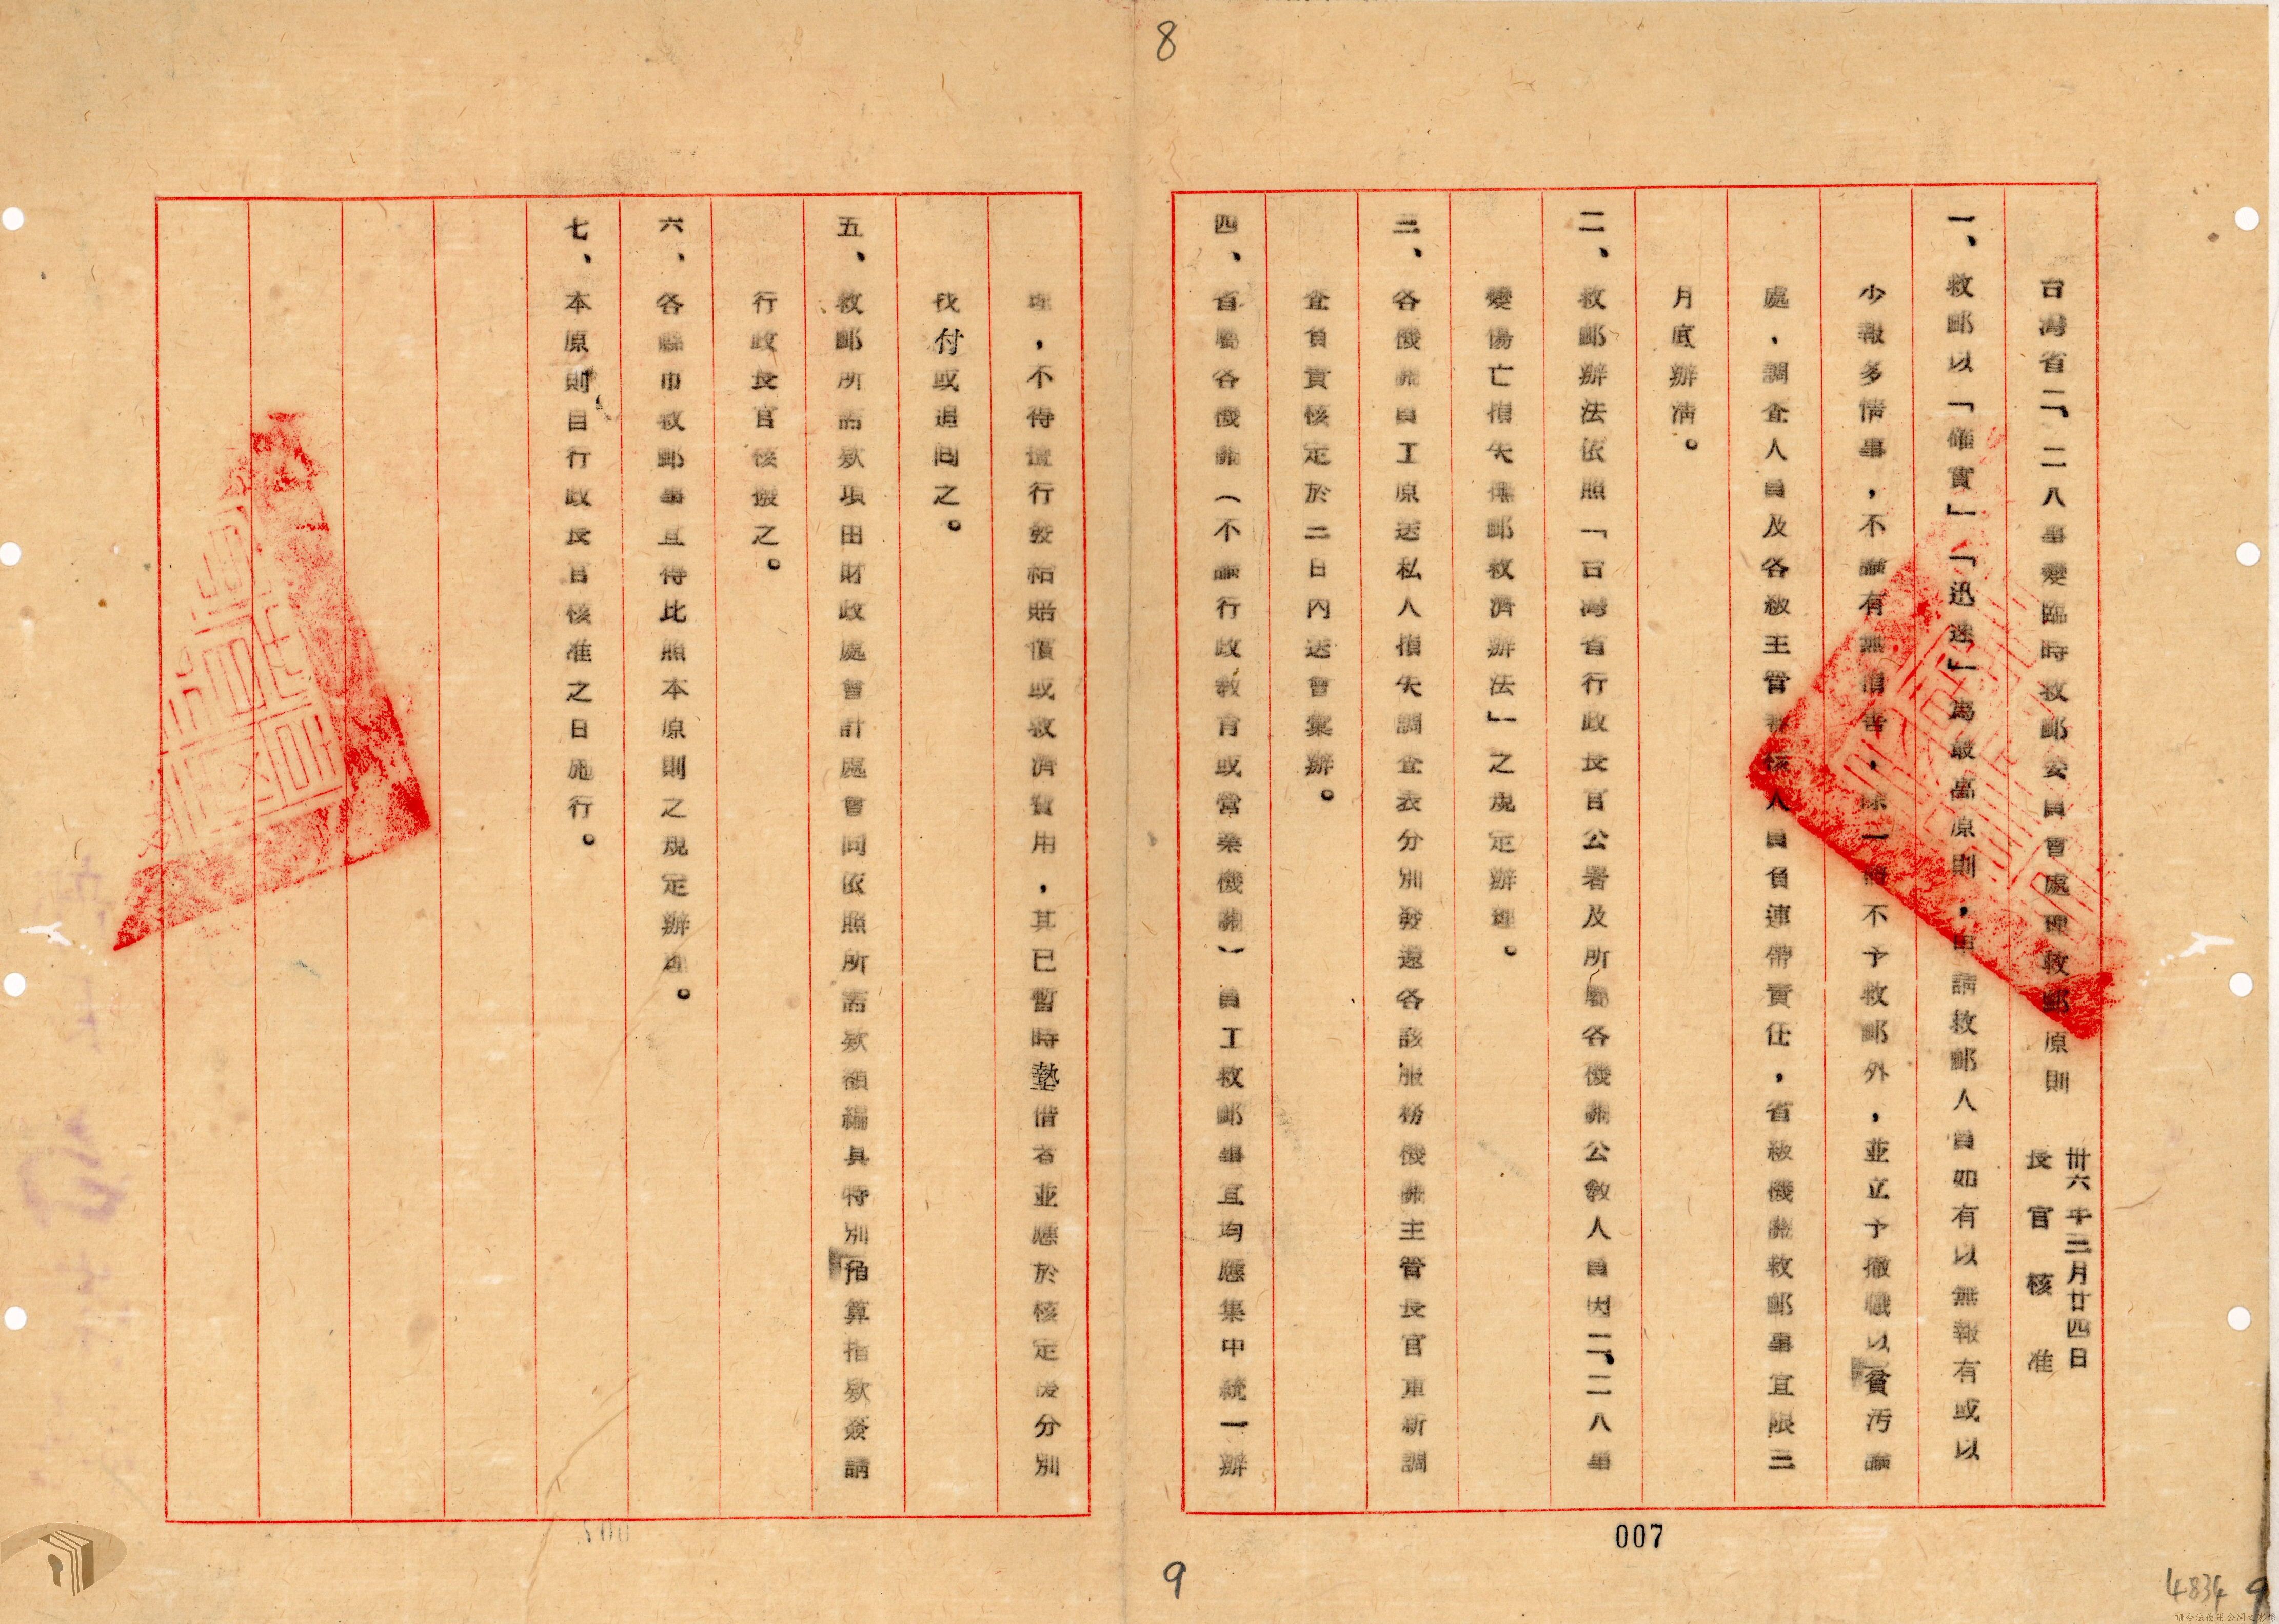 8
台灣省二、二八事變臨時救邺委員會處理救邺原則
卅六年三月廿四日
長官核准
一、救邺以「確實」「迅速」為最高原則，申請救邺人員如有以無報有或以
少報多情事，不論有無損害，除一律不予救邺外，並立予撤職以貪汚論
處，調查人員及各級主管審核人員負連帶責任，省級機關救邺事宜限三
月底辦清。
二、救邺辦法依照「台灣省行政長官公署及所屬各機關公教人員因二、二八事
變傷亡損失撫邺救濟辦法」之規定辦理。
三、各機關員工原送私人損失調查表分別發還各該服務機關主管長官重新調
查負責核定於二日內送會彙辦。
四、省屬各機關（不論行政教育或營業機關）員工救邺事宜均應集中統一辦
理，不得擅行發給賠償或救濟費用，其已暫時墊借者並應於核定後分別
找付或追回之。
五、救邺所需欵項由財政處會計處會同依照所需欵額編具特別預算指欵簽請
行政長官核撥之。
六、各縣市救邺事宜得比照本原則之規定辦理。
七、本原則自行政長官核准之日施行。
007
9
4834 9
請合法使用公開之影像